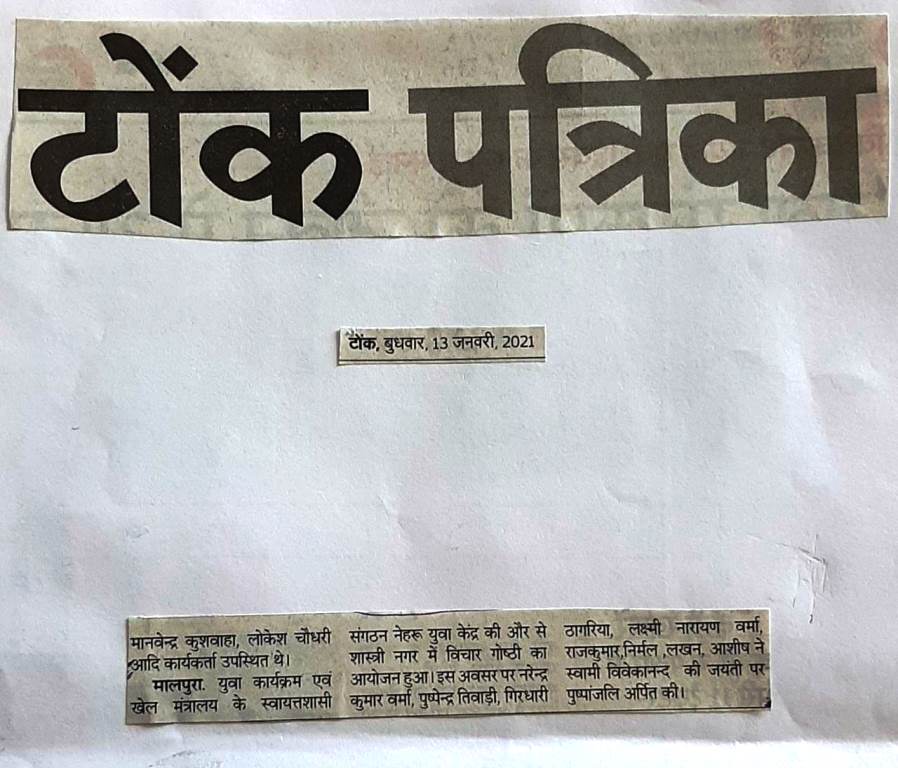 टोंक पत्रिका
टोंक, बुधवार, 13 जनवरी, 2021
मानवेन्द्र कुशवाहा, लोकेश चौधरी
आदि कार्यकर्ता उपस्थित थे।
मालपुरा. युवा कार्यक्रम एवं
खेल मंत्रालय के स्वायत्तशासी
संगठन नेहरू युवा केंद्र की और से
शास्त्री नगर में विचार गोष्ठी का
आयोजन हुआ। इस अवसर पर नरेन्द्र
कुमार वर्मा, पुष्पेन्द्र तिवाड़ी, गिरधारी
ठागरिया, लक्ष्मी नारायण वर्मा,
राजकुमार,निर्मल ,लखन, आशीष ने
स्वामी विवेकानन्द की जयंती पर
पुष्पांजलि अर्पित की।